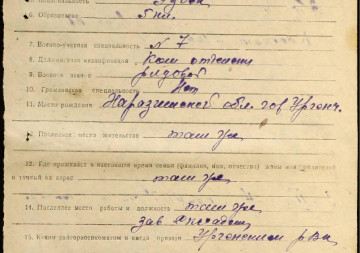 6. Образование 5 кл.
7. Военно-учетная специальность № 7
8. Должностная квалификация Ком отделения
9. Военное звание рядовой
10. Гражданская специальность Нет
11. Место рождения обл. гор Ургенч.
12. Последнее место жительства там же
12. Где проживает в настоящее время семья (фамилия, имя, отчество) жены или родителей
и точный их адрес там же
14. Последнее место работы и должность там же
зав.
15. Каким райгорвоенкоматом и когда призван